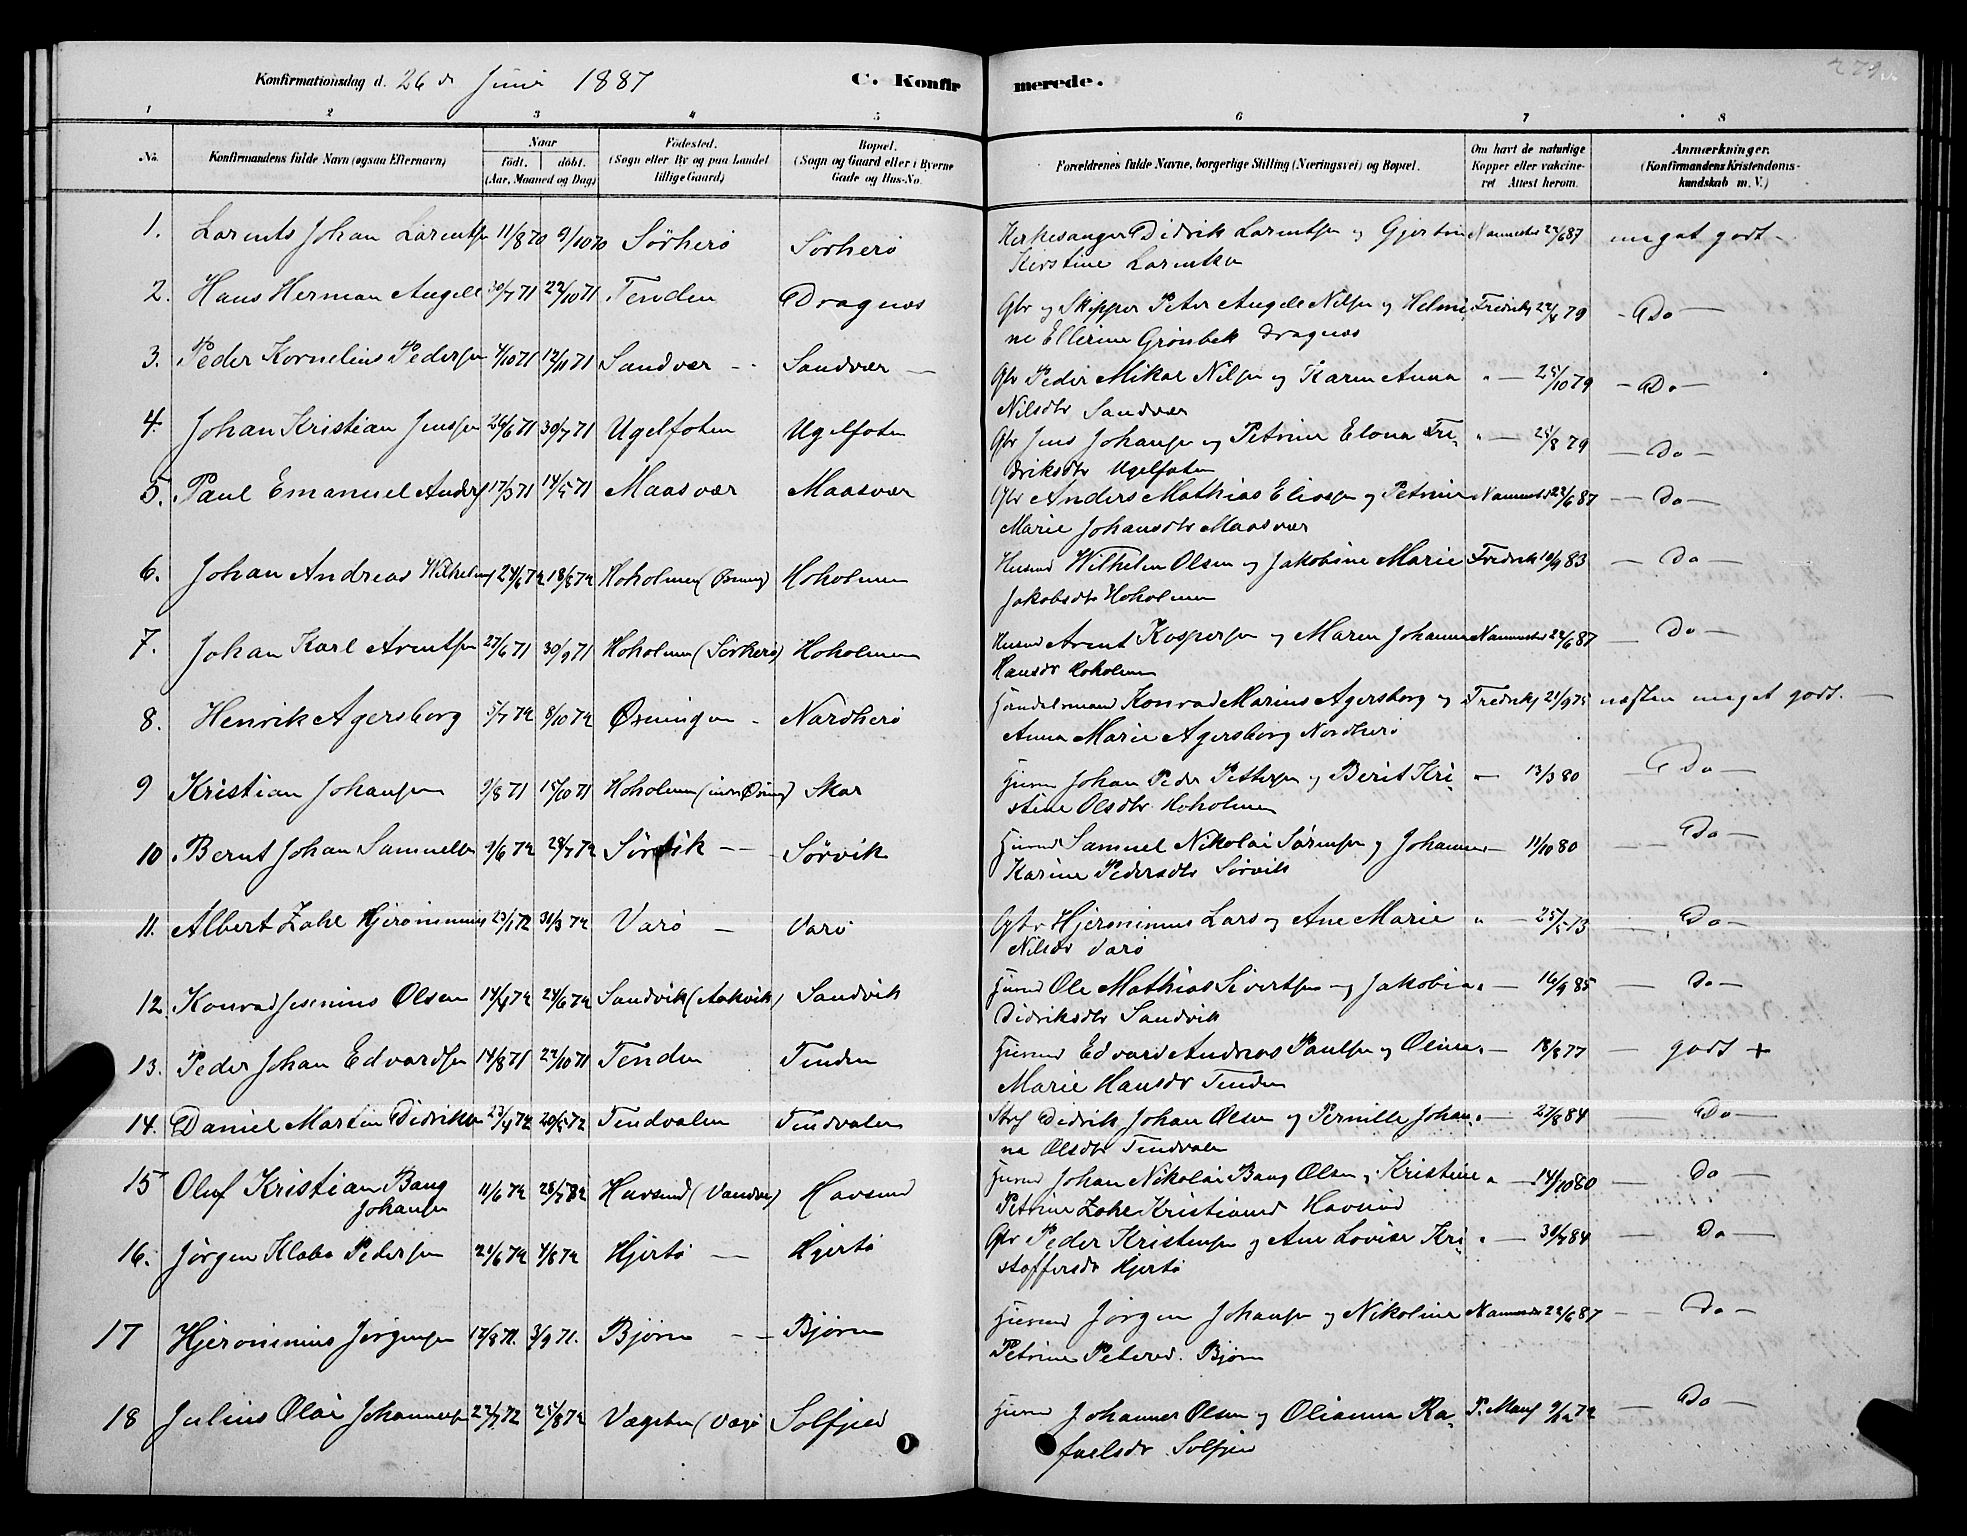 Konfirmationsdag d. 26 d. Juni 1887 C. Konfirmerede. 279
1 2 3 4 5 6 7 8
No. Konfirmandens fulde Navn (ogsaa Efternavn) Naar født. døbt. (Aar, Maaned og Dag) Fødested. (Sogn eller By og paa Landet tillige Gaard) Bopæl. (Sogn og Gaard eller i Byerne Gade og Hus-No. Forældrenes fulde Navne, borgerlige Stilling (Næringsvei) og Bopæl. Om havt de naturlige Kopper eller vakcineret Attest herom. Anmærkninger. (Konfirmandens Kristendomskundskab m. V.)
1. Lorents Johan Lorentsen 11/8 70 9/10 70 Sørherø Sørherø Kirkesanger Didrik Lorentsen og Gjertine Nannestad 22/6 87 meget godt
Kirstine Lorentsen
2. Hans Herman Angell 30/7 71 22/10 71 Tenden Dragnæs Gbr og Skipper Peter Angell Nilsen og Helmi- Fredriks 22/4 79 Do
ne Ellerine Grønbek Dragnæs
3. Peder Kornelius Pedersen 4/10 71 12/11 71 Sandvær Sandvær Gbr Peder Mikal Nilsen og Karen Anna " 25/10 79 Do
Nilsdtr Sandvær
4. Johan Kristian Jensen 26/6 71 30/7 71 Ugelfoten Ugelfoten Gbr Jens Johansen og Petrine Elona Fre- " 25/8 79 Do
driksdtr Ugelfoten
5. Paul Emanuel Anders 17/3 71 14/5 71 Maasvær Maasvær Gbr Anders Mathias Eliasen og Petrine Nannestad 22/6 87 Do
Marie Johansdtr Maasvær
6. Johan Andreas Wilhelms 24/6 72 18/8 72 Hoholmen (Øxning) Hoholmen Husmd Wilhelm Olsen og Jakobine Marie Fredrik 10/9 83 Do
Jakobsdtr Hoholmen
7. Johan Karl Arentsen 27/6 71 30/9 71 Hoholmen (Sørherø) Hoholmen Husmd Arent Kaspersen og Maren Johanna Nannestad 22/6 87 Do
Hansdr Hoholmen
8. Henrik Agersborg 5/7 72 8/10 72 Øxningen Nordherø Handelsmand Konrad Marius Agersborg og Fredriks 21/9 75 næsten meget godt.
Anna Marie Agersborg Nordherø
9 Kristian Johansen 9/8 71 15/10 71 Hoholmen (indre Øxning) Skar Husmd Johan Peder Pettersen og Berit Kri- " 13/3 80 Do
stine Olsdtr Hoholmen
10. Bernt Johan Samuels 9/6 72 28/7 72 Sørvik Sørvik Husmd Samuel Nikolai Sørensen og Johanna " 11/10 80 Do
Karine Pedersdtr Sørvik
11. Albert Zahl Hjeronimus 23/1 72 31/3 72 Varø Varø Gbr Hjeronimus Lars og Ane Marie " 25/5 73 Do
Nilsdr Varø
12. Konrad Jesenius Olsen 14/4 72 24/6 72 Sandvik (Aakvik) Sandvik Husmd Ole Mathias Sivertsen og Jakobia " 16/9 85 Do
Didriksdtr Sandvik
13. Peder Johan Edvardsen 14/8 71 22/10 71 Tenden Tenden Husmd Edvard Andreas Paulsen og Oline " 18/8 77 godt +
Marie Hansdr Tenden
14. Daniel Martin Didriksen 23/4 72 20/5 72 Tendvalen Tendvalen Didrik Johan Olsen og Pernille Johan- " 27/8 84 Do
na Olsdtr Tendvalen
15 Oluf Kristian Bang 11/6 72 28/7 82 Havsund (Vandve) Havsund Husmd Johan Nikolai Bang Olsen og Kristine " 14/10 80 Do
Johansen Petrine Zahl Kristiansd Havsund
16. Jørgen Klabo Pedersen 21/6 72 4/8 72 Hjertø Hjertø Gbr Peder Kristensen og Ane Lovise Kri- " 30/7 84 Do
stoffersdr Hjertø
17 Hjeronimus Jørgensen 12/8 71. 3/9 71. Bjørn Bjørn Husmd Jørgen Johansen og Nikoline Nannestad 22/6 87 Do
Petrine Petersd. Bjørn
18 Julius Olai Johannesen 22/7 72 25/8 72 Vægsten (Vægø Solfjeld Husmd Johannes Olsen og Olianna Ra- P. Mauf 9/12 72 Do
faelsdr Solfjeld